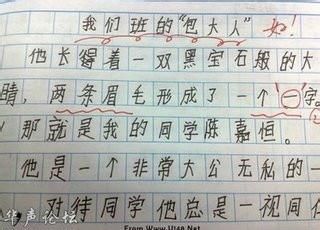 我们班的“包大人” 好!
他长得着一双黑宝石般的大
睛，两条眉毛形成了一个“一”字。
那就是我的同学陈嘉恒。
他是一个非常大公无私的一
对待同学他总是一视同仁
华声论坛
From Www.U148.Net